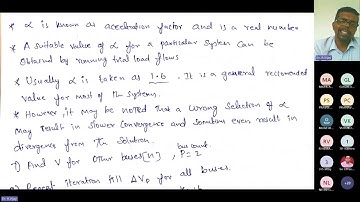 * α is known as acceleration factor and is a real number
* A suitable value of α for a particular system can be
obtained by running trial load flows
* Usually α is taken as 1.6. It is a general recommended
value for most of the systems.
* However, it may be noted that a wrong selection of α
may result in slower convergence and sometimes even result in
divergence from the solution.
bus count
7) And V for other buses [n], P=2
Repeat iteration till ΔVp for all buses.
AM
GL
RV
1
NL
+19